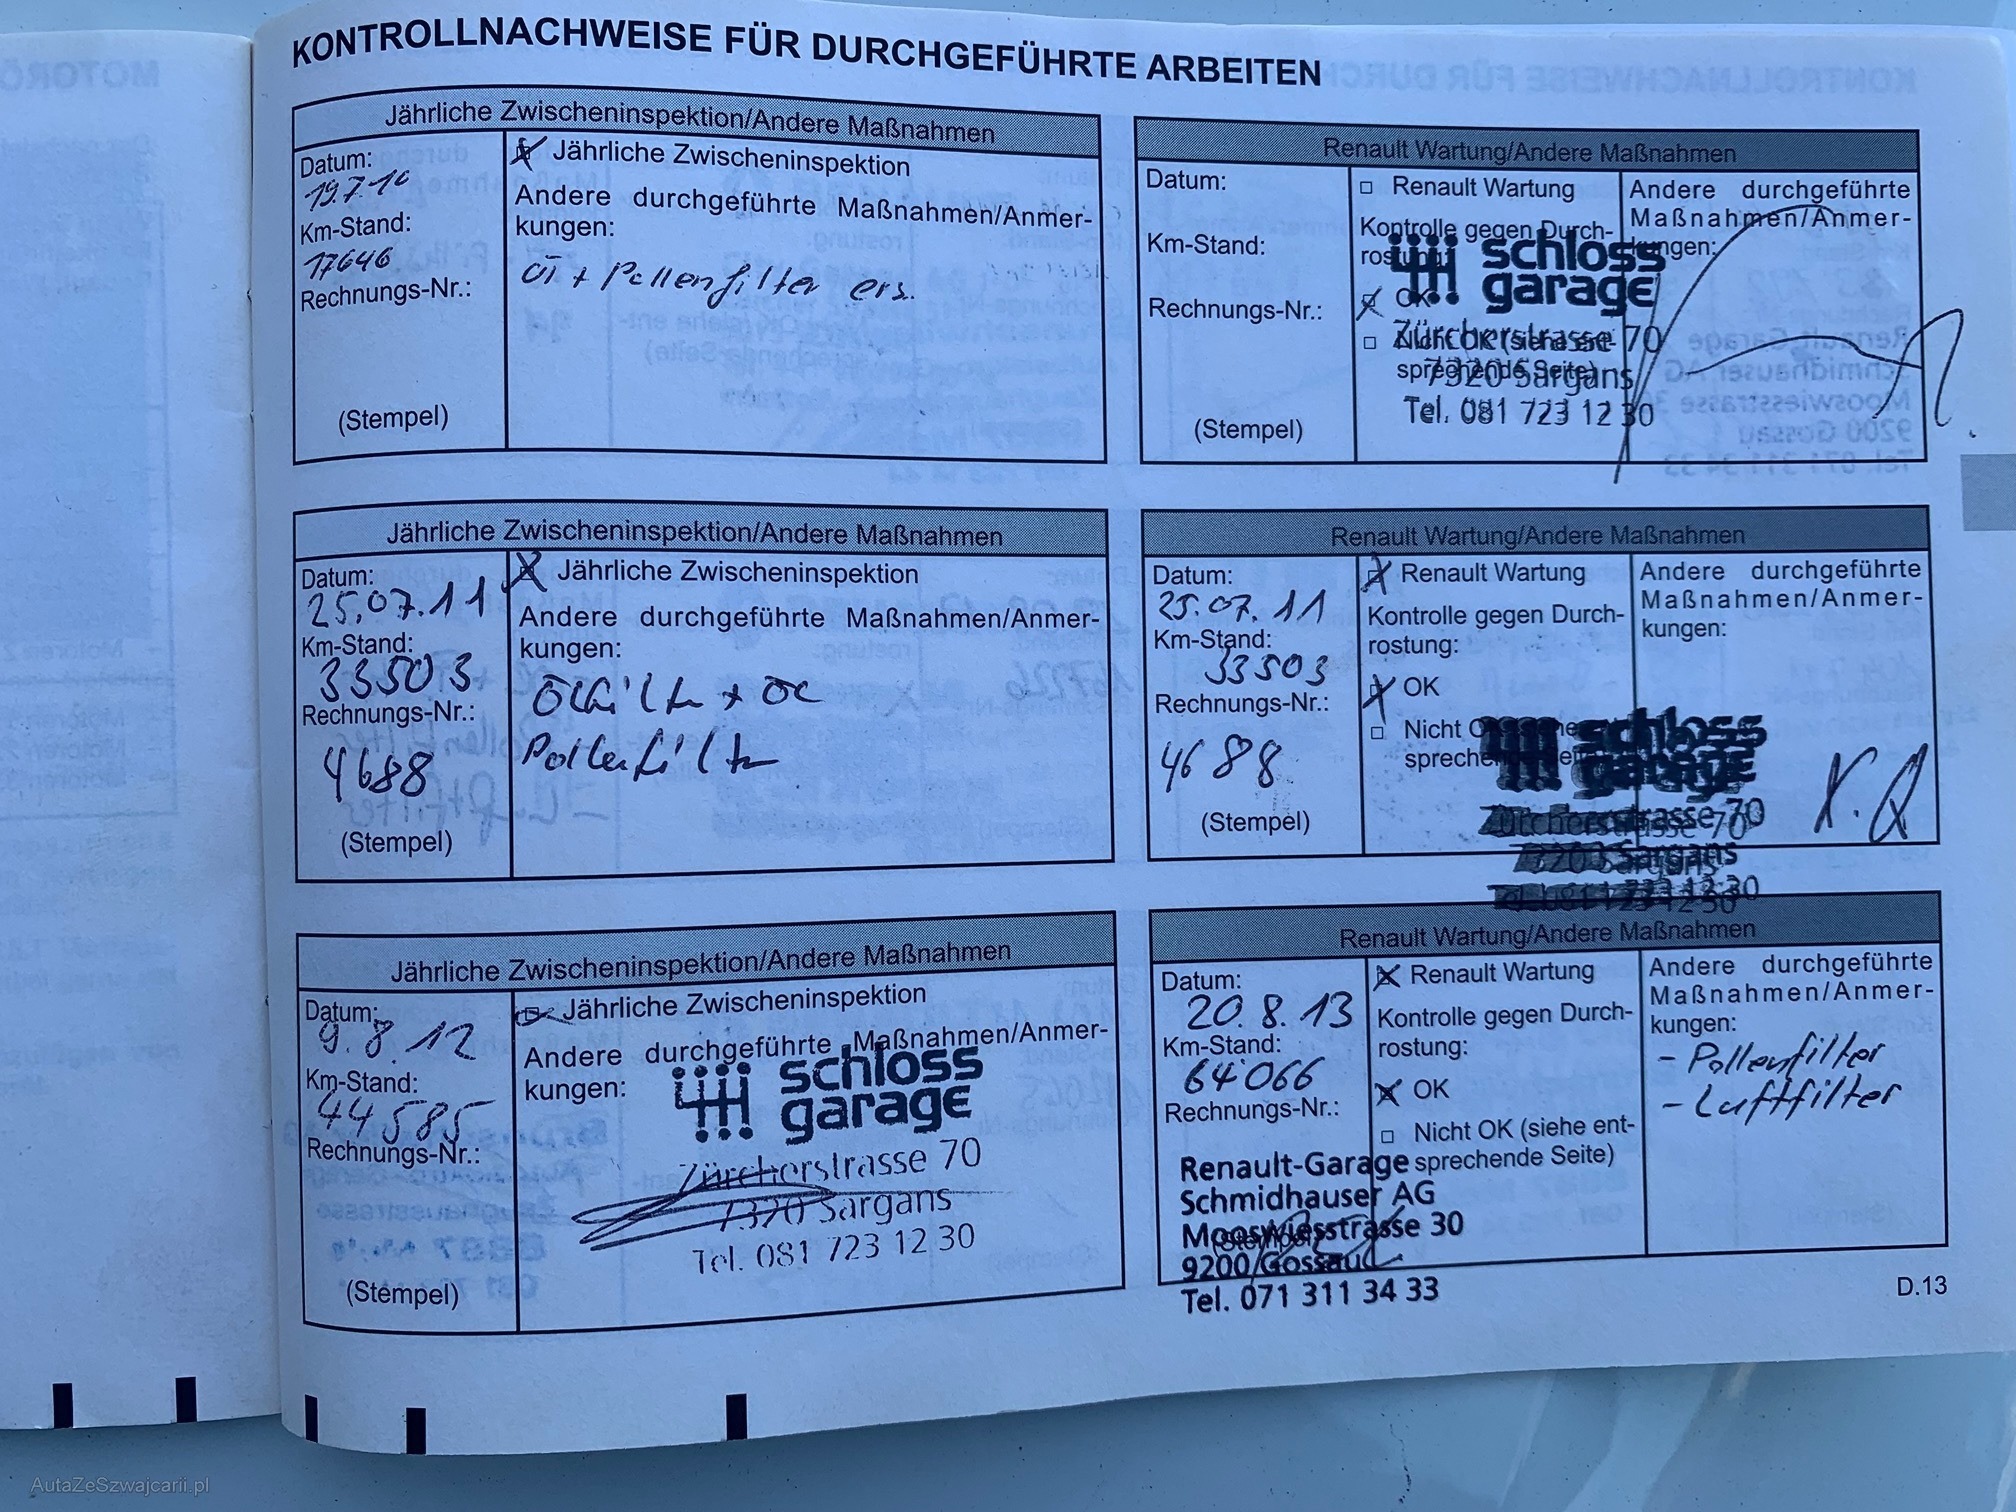 KONTROLLNACHWEISE FÜR DURCHGEFÜHRTE ARBEITEN
Jährliche Zwischeninspektion/Andere Maßnahmen
Datum:
19.7.10
Km-Stand:
17646
Rechnungs-Nr.:
(Stempel)
Jährliche Zwischeninspektion
Andere durchgeführte Maßnahmen/Anmer-
kungen:
+ Pollenfilter ers.
Renault Wartung/Andere Maßnahmen
Datum:
Km-Stand:
Rechnungs-Nr.:
(Stempel)
Renault Wartung
Kontrolle gegen Durch-
rostung:
OK
Nicht OK (siehe ent-
sprechende Seite)
Andere durchgeführte
Maßnahmen/Anmer-
kungen:
schloss
garage
Zürcherstrasse 70
7320 Sargans
Tel. 081 723 12 30
Jährliche Zwischeninspektion/Andere Maßnahmen
Datum:
25.07.11
Km-Stand:
33503
Rechnungs-Nr.:
4688
(Stempel)
Jährliche Zwischeninspektion
Andere durchgeführte Maßnahmen/Anmer-
kungen:
Ölfilter + Öl
Pollenfilter
Renault Wartung/Andere Maßnahmen
Datum:
25.07.11
Km-Stand:
33503
Rechnungs-Nr.:
4688
(Stempel)
Renault Wartung
Kontrolle gegen Durch-
rostung:
OK
Nicht
Andere durchgeführte
Maßnahmen/Anmer-
kungen:
schloss
garage
Zürcherstrasse 70
Sargans
081 723 12 30
Jährliche Zwischeninspektion/Andere Maßnahmen
Datum:
9.8.12
Km-Stand:
44585
Rechnungs-Nr.:
(Stempel)
Jährliche Zwischeninspektion
Andere durchgeführte Maßnahmen/Anmer-
kungen:
schloss
garage
Zürcherstrasse 70
7320 Sargans
Tel. 081 723 12 30
Renault Wartung/Andere Maßnahmen
Datum:
20.8.13
Km-Stand:
64066
Rechnungs-Nr.:
Renault Wartung
Kontrolle gegen Durch-
rostung:
OK
Nicht OK (siehe ent-
sprechende Seite)
Andere durchgeführte
Maßnahmen/Anmer-
kungen:
- Pollenfilter
- Luftfilter
Renault-Garage
Schmidhauser AG
Mooswiesstrasse 30
9200 Gossau
Tel. 071 311 34 33
(Stempel)
D.13
AutaZeSzwajcarii.pl